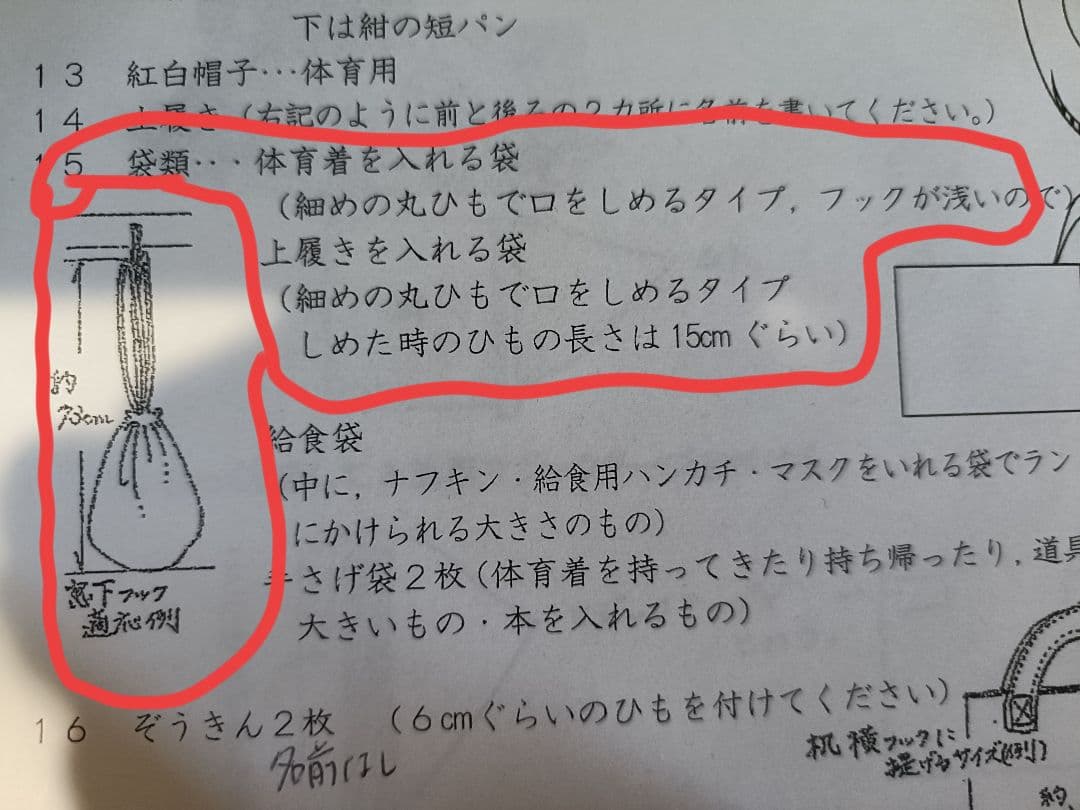 下は紺の短パン
13 紅白帽子…体育用
14 上履き（右記のように前と後ろの2カ所に名前を書いてください。）
15 袋類…体育着を入れる袋
（細めの丸ひもで口をしめるタイプ，フックが浅いので）
上履きを入れる袋
（細めの丸ひもで口をしめるタイプ
しめた時のひもの長さは15cmぐらい）
約
cm
窓下フック
適応例
給食袋
（中に，ナフキン・給食用ハンカチ・マスクをいれる袋でラン
にかけられる大きさのもの）
手さげ袋2枚（体育着を持ってきたり持ち帰ったり，道具
大きいもの・本を入れるもの）
16 ぞうきん2枚 （6cmぐらいのひもを付けてください）
名前なし
机横フックに
提げるサイズ(例)
約